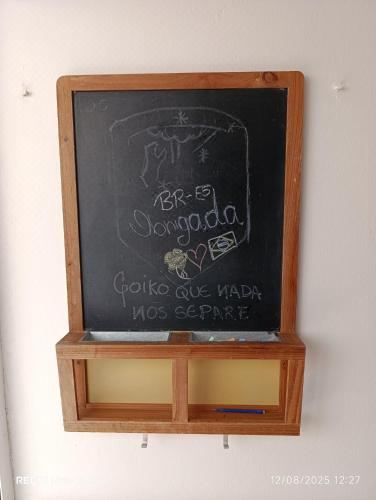 BR-ES
Jongada
Goiko QUE NADA
NOS SEPARE
12/08/2025 12:27